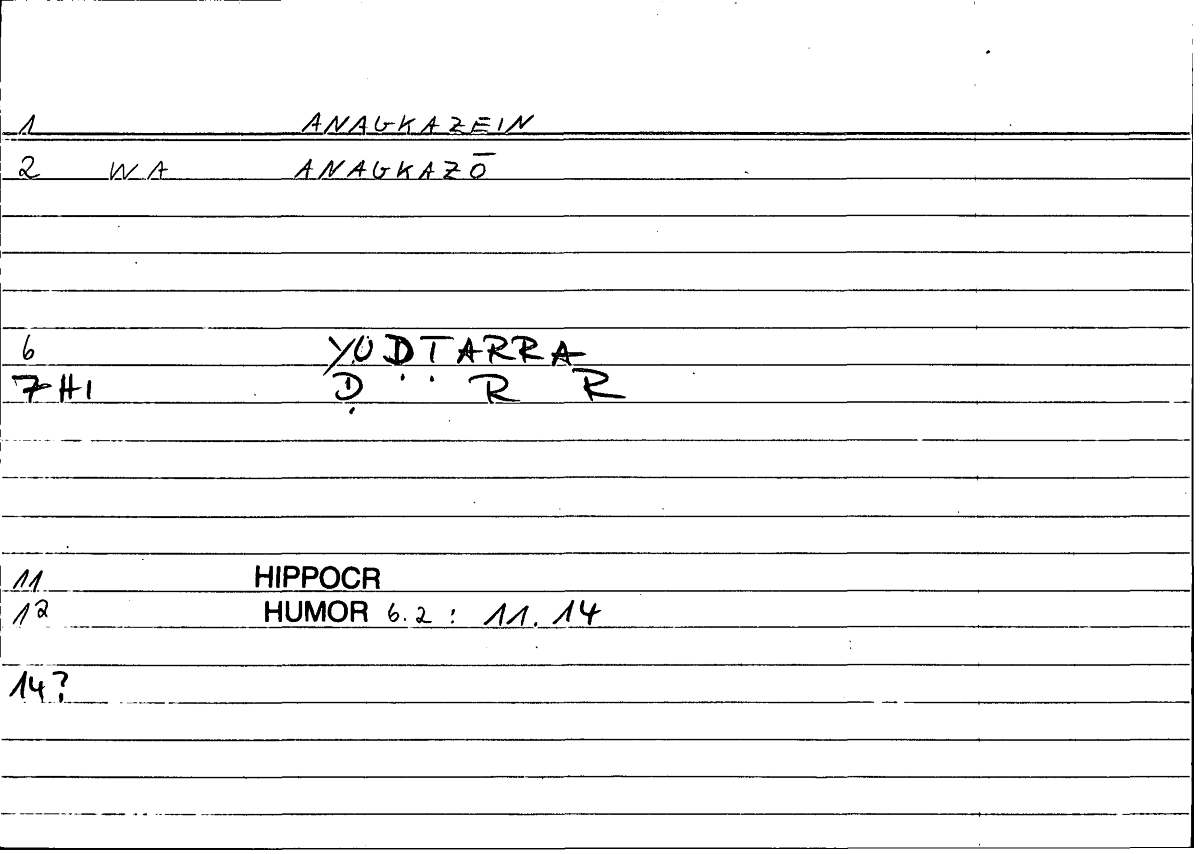 1 ANAGKAZEIN
2 WA ANAGKAZŌ
6 YUḌṬARRA
7 HI Ḍ R R
11 HIPPOCR
12 HUMOR 6.2 : 11.14
14?